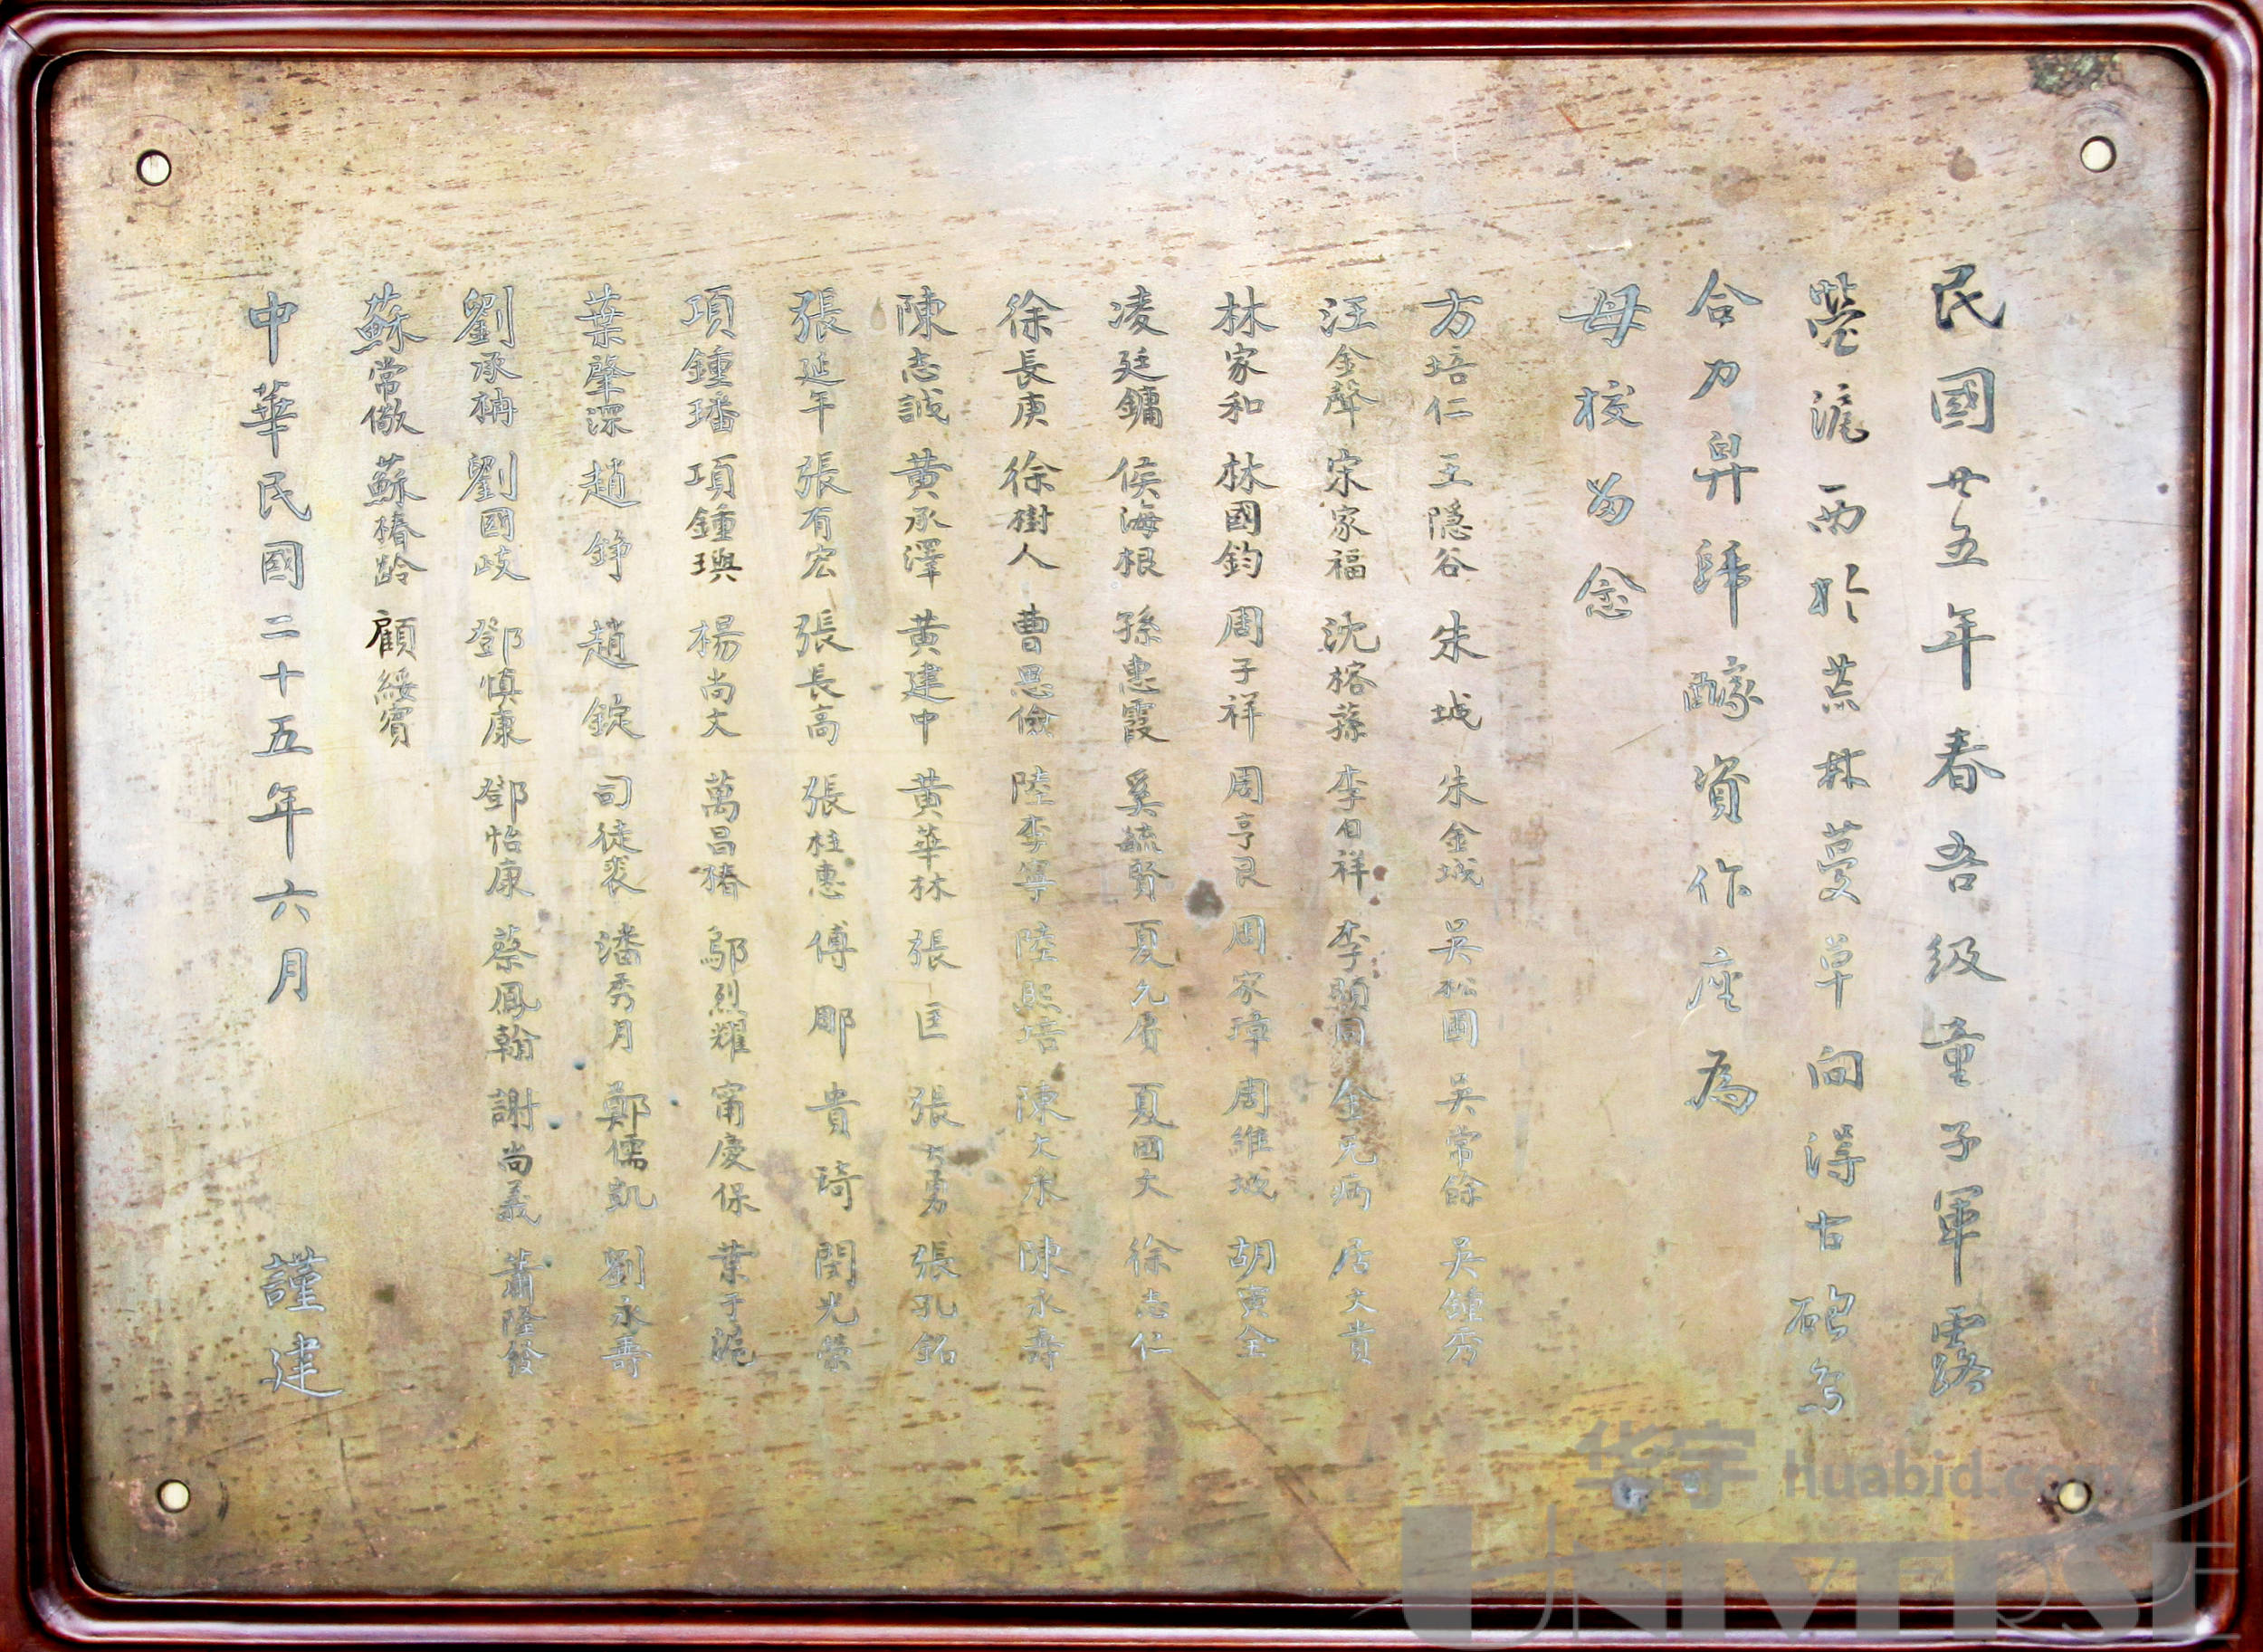 民國廿五年春吾級童子軍露
營滬西於荒林蔓草向得古礮焉
合力舁歸醵資作座為
母校留念
方培仁 王隱谷 朱城 朱金城 吳松國 吳常餘 吳鍾秀
汪金聲 宋家福 沈榕蓀 李伯祥 李顯同 金无病 居大貴
林家和 林國鈞 周子祥 周亨良 周家璋 周維城 胡寅全
凌廷鏞 侯海根 孫惠霞 奚毓賢 夏允眉 夏國大 徐志仁
徐長庚 徐樹人 曹思儉 陸李寧 陸熙培 陳大釆 陳永壽
陳志誠 黃承澤 黃建中 黃華林 張匡 張大勇 張孔銘
張延年 張有宏 張長高 張桂惠 傅郎 貴琦 閔光榮
項鍾璠 項鍾璵 楊尚文 萬昌椿 鄔烈耀 甯慶保 葉于滬
葉肇深 趙錚 趙錠 司徒裘 潘秀月 鄭儒凱 劉永壽
劉承枬 劉國歧 鄧慎康 鄧怡康 蔡鳳翰 謝尚義 蕭隆發
蘇常儆 蘇椿齡 顧綏賓
中華民國二十五年六月 謹建
华宇 huabid.com
UNIVERSE